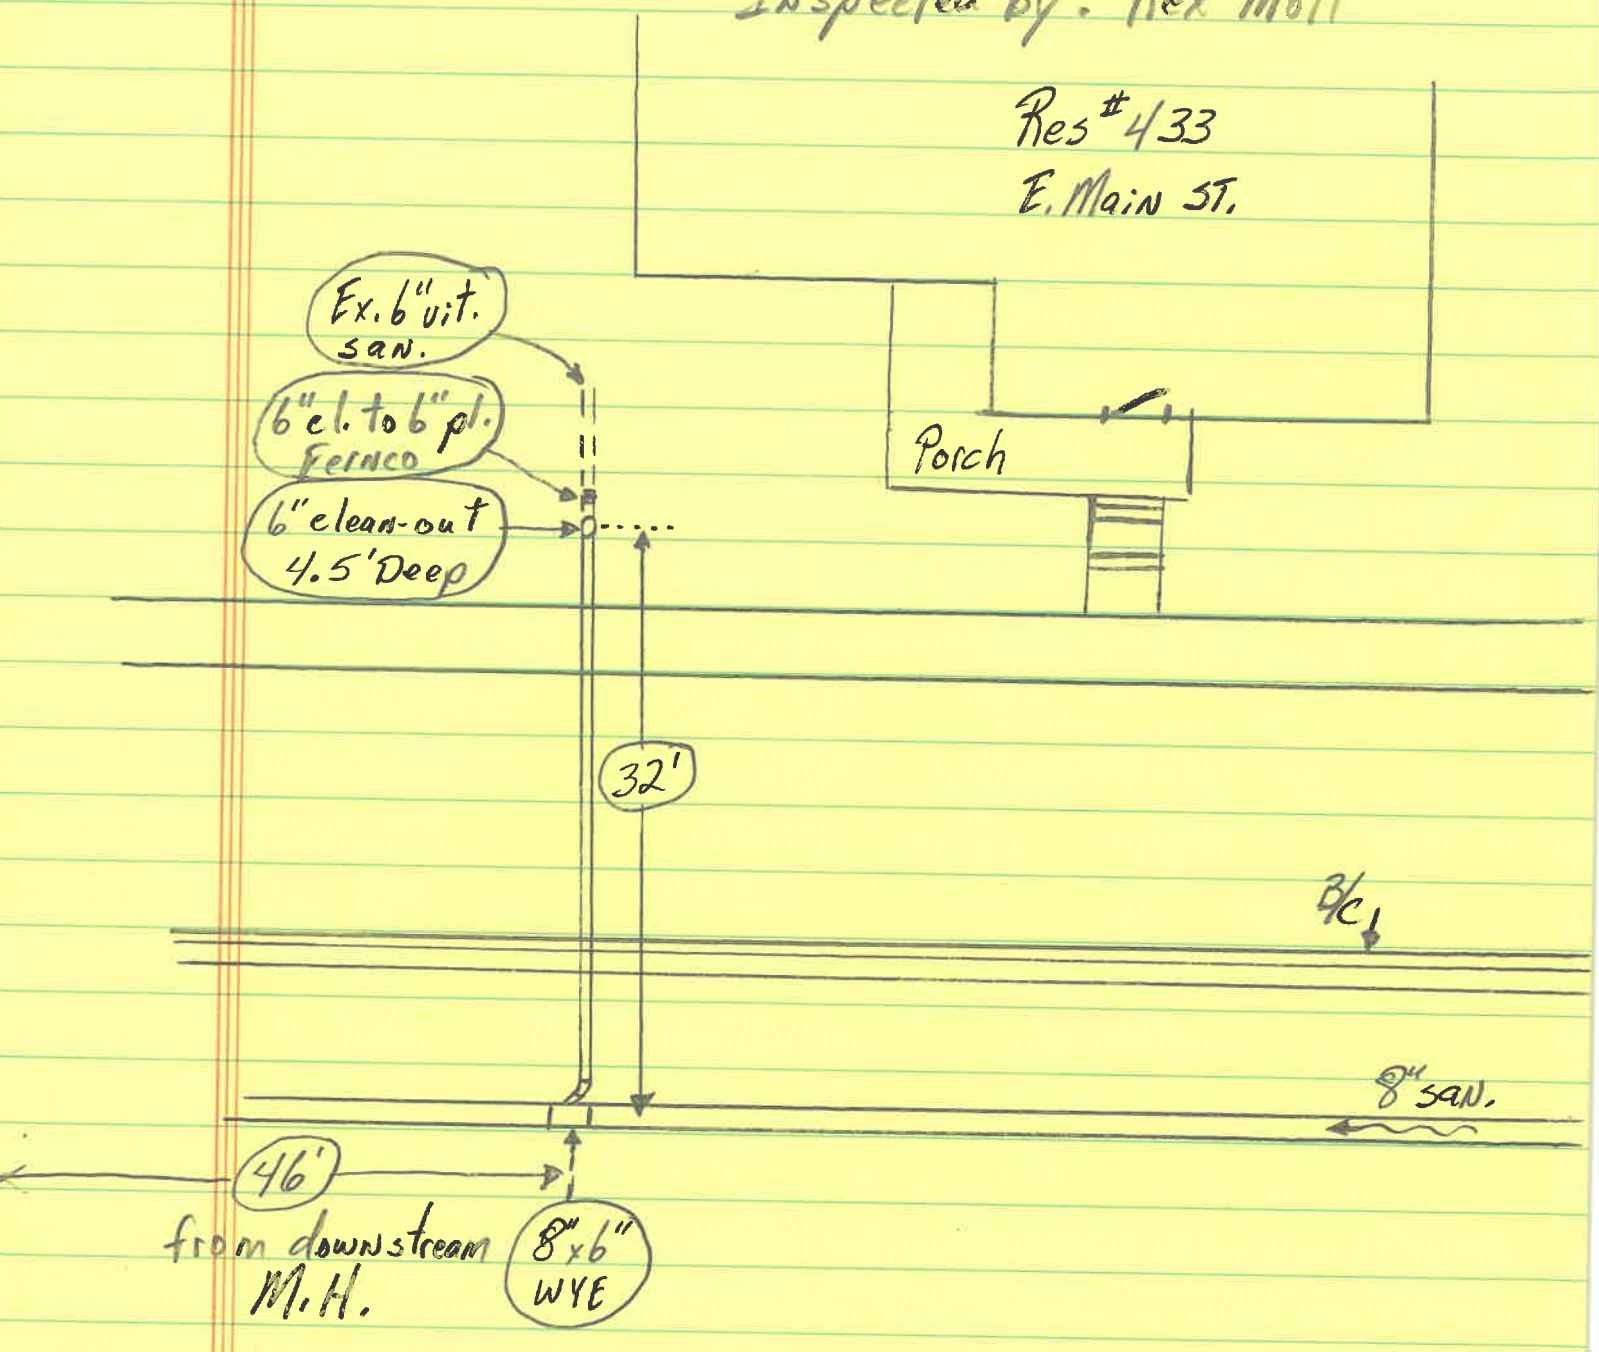 Inspected by: Rex Moll
Res # 433
E. Main ST.
Ex. 6" vit.
san.
6" cl. to 6" pl.
Fernco
6" clean-out
4.5' Deep
Porch
32'
B/C
8" san.
46'
from downstream
M.H.
8" x 6"
WYE